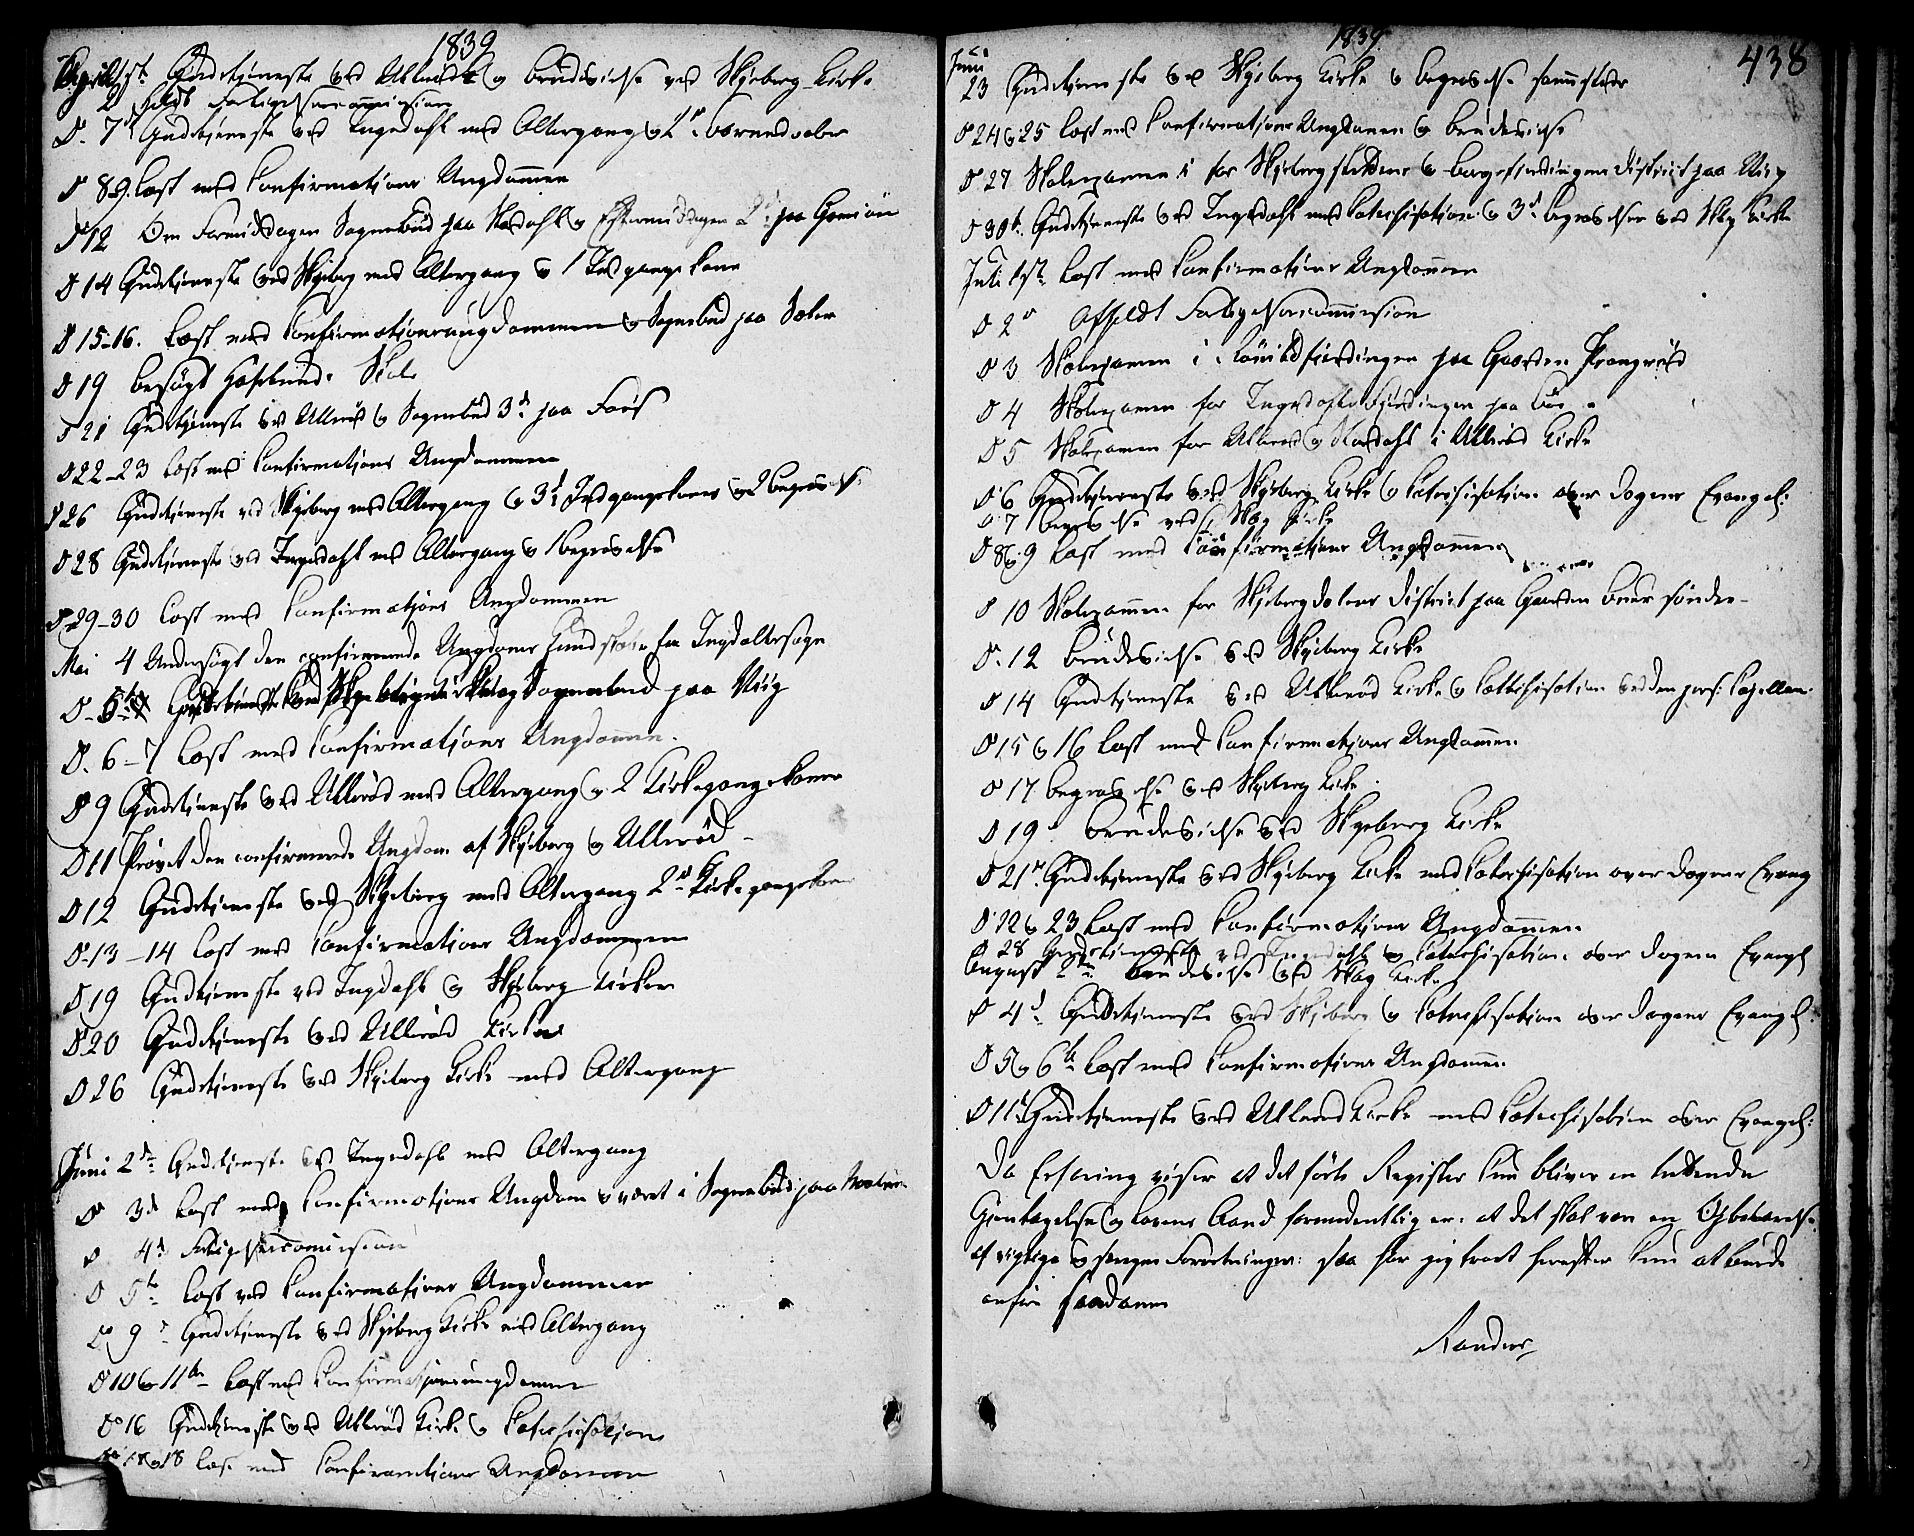 1839
April 1st. Gudstjeneste ved Ullerød og brudevielse ved Skjeberg Kirke
2 holdt Fatigcommission
D. 7d Gudstjeneste ved Ingedahl med Altergang og barnedaab
D 8 9. Læst med Confirmations Ungdommen
D 12 Om Formiddagen Sognebud paa og Eftermiddagen 2d: paa
D 14 Gudstjeneste ved Skjeberg med Altergang og 1 Indgangskone
D 15-16. Læst med Confirmationsungdommen og Sognebud paa
D 19 besøgt Skole
D 21 Gudstjeneste ved Ullerød og Sognebud 3d paa
D 22-23 Læst med Confirmations Ungdommen
D 26 Gudstjeneste ved Skjeberg med Altergang og 3d Indgangskoner og 2 begravels:
D 28 Gudstjeneste ved Ingedahl med Altergang og 1 begravelse
D 29-30 Læst med Confirmations Ungdommen
Mai 4 Undersøgt den confirmerende Ungdoms Kundskaber fra Ingedalsogn
D. 5te Sognebud paa Viig
D. 6-7 Læst med Confirmations Ungdommen.
D 9 Gudstjeneste ved Ullerød med Altergang og 2 Kirkegangskoner
D 11 Prøvet den confirmerende Ungdom af Skjeberg og Ullerød
D 12 Gudstjeneste ved Skjeberg med Altergang 2d Kirkegangskoner
D. 13-14 Læst med Confirmations Ungdommen
D 19 Gudstjeneste ved Ingdahl og Skjeberg Kirker
D 20 Gudstjeneste ved Ullerød Kirke
D 26 Gudstjeneste ved Skjeberg Kirke med Altergang
Juni 2d Gudstjeneste ved Ingedahl med Altergang
D 3d Læst med Confirmations Ungdom og været i Sognebud paa
D 4d Fatigcommission
D 5te Læst med Confirmations Ungdommen
D 9 Gudstjeneste ved Skjeberg Kirke med Altergang
D 10 og 11te Læst med Confirmationsungdommen
D 16 Gudstjeneste ved Ullerød Kirke og Catechisation
D 17 og 18 Læst med Confirmations Ungdommen
1839
438
Juni
23 Gudstjeneste ved Skjeberg Kirke og begravelse sammesteds
D 24 og 25 Læst med Confirmations Ungdommen og brudevielse
D 27 Skolexamen i for og district paa Viig
D 30te Gudstjeneste ved Ingedahl med Catechisation og 3d begravelser ved Skbg Kirke
Juli 1ste Læst med Confirmations Ungdommen
D 2 Afholdt Fatigcommission
D 3 Skolexamen i paa Gaarden
D 4 Skolexamen for Ingedahls Fjerdingen paa
D 5 Skolexamen for Ullerød og i Ullerød Kirke
D 6 Gudstjeneste ved Skjeberg Kirke og Catechisation over dagens Evangel:
D 7 begravelse ved Skbg Kirke
D 8 og 9 Læst med Confirmations Ungdommen
D 10 Skolexamen for Skjebergdalens District paa Gaarden søndre
D. 12 brudevielse ved Skjeberg Kirke
D 14 Gudstjeneste ved Ullerød Kirke og Catechisation ved den pers: Capellan
D 15 og 16 Læst med Confirmations Ungdommen
D 17 begravelse ved Skjeberg Kirke
D 19 brudevielse ved Skjeberg Kirke
D 21 Gudstjeneste ved Skjeberg Kirke med Catechisation over dagens Evang
D 22 og 23 Læst med Confirmations Ungdommen
D 28 Gudstjeneste ved Ingedahl og Catechisation over dagens Evangl
August 2den brudevielse ved Skbg Kirke
D 4d Gudstjeneste ved Skjeberg og Catechisation over dagens Evangl:
D 5 og 6te Læst med Confirmations Ungdommen
D 11te Gudstjeneste ved Ullerød Kirke med Catechisation over Evangel:
Da Erfaring viser at det førte Register kun bliver en
Gjentagelse og Lovens Aand formodentlig er: at det skal være en Opbevarelse
af vigtige og Forretninger: saa har jeg herefter kun at burde
anføre saadanne
Randers